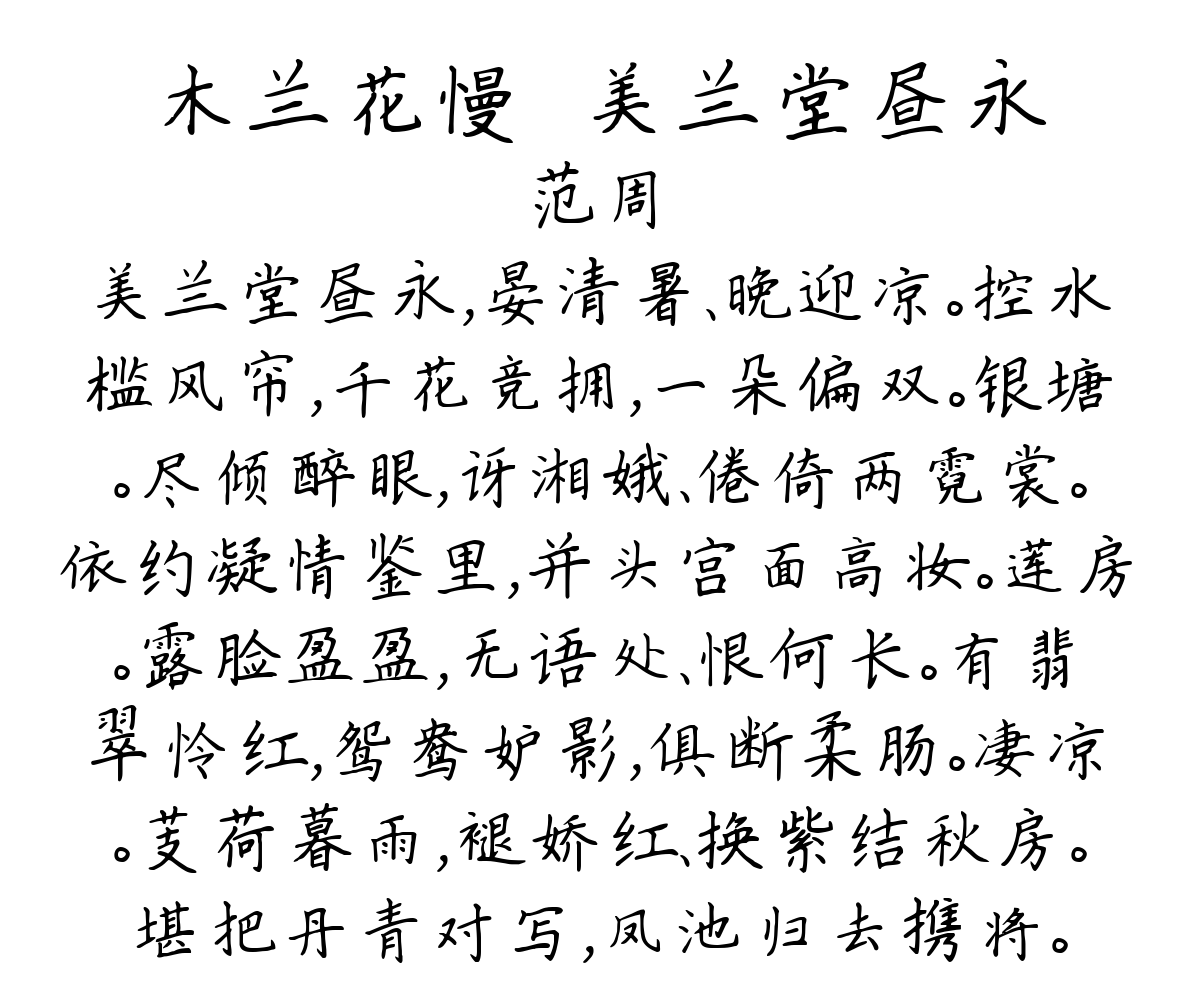 木兰花慢 美兰堂昼永
范周
美兰堂昼永,晏清暑、晚迎凉。控水
槛风帘,千花竞拥,一朵偏双。银塘
。尽倾醉眼,讶湘娥、倦倚两霓裳。
依约凝情鉴里,并头宫面高妆。莲房
。露脸盈盈,无语处、恨何长。有翡
翠怜红,鸳鸯妒影,俱断柔肠。凄凉
。芰荷暮雨,褪娇红、换紫结秋房。
堪把丹青对写,凤池归去携将。